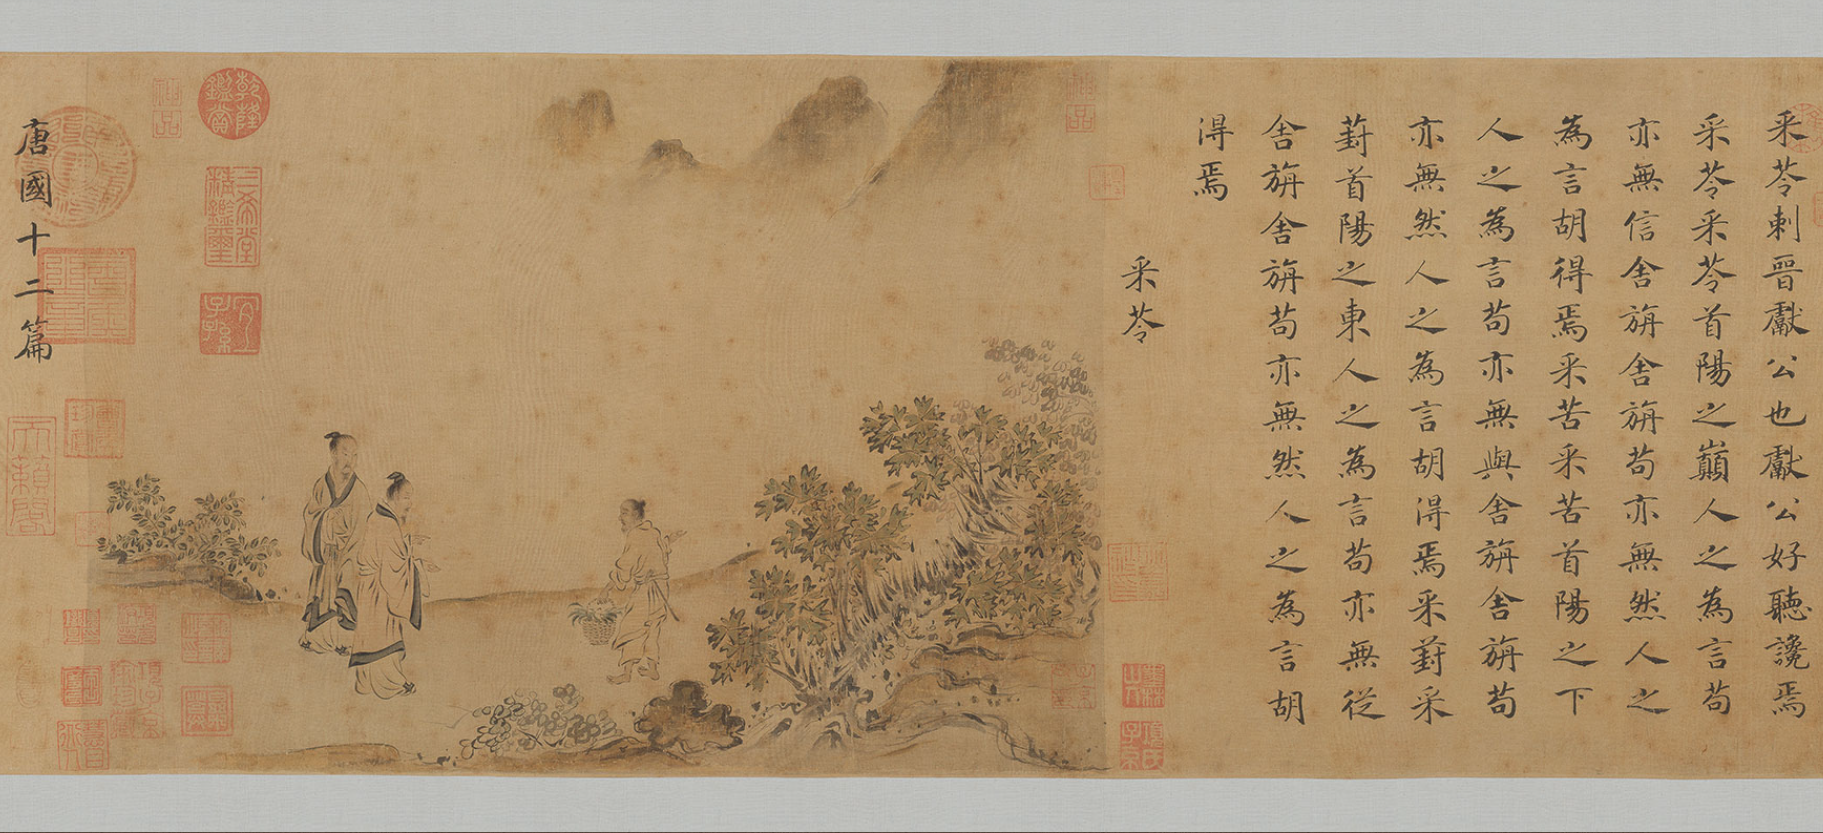 采苓刺晉獻公也獻公好聽讒焉
采苓采苓首陽之巔人之為言苟
亦無信舍旃舍旃苟亦無然人之
為言胡得焉采苦采苦首陽之下
人之為言苟亦無與舍旃舍旃苟
亦無然人之為言胡得焉采葑采
葑首陽之東人之為言苟亦無從
舍旃舍旃苟亦無然人之為言胡
得焉
采苓
神品
乾隆鑑賞
三希堂精鑑璽
宜子孫
神品
唐國十二篇
天籟閣